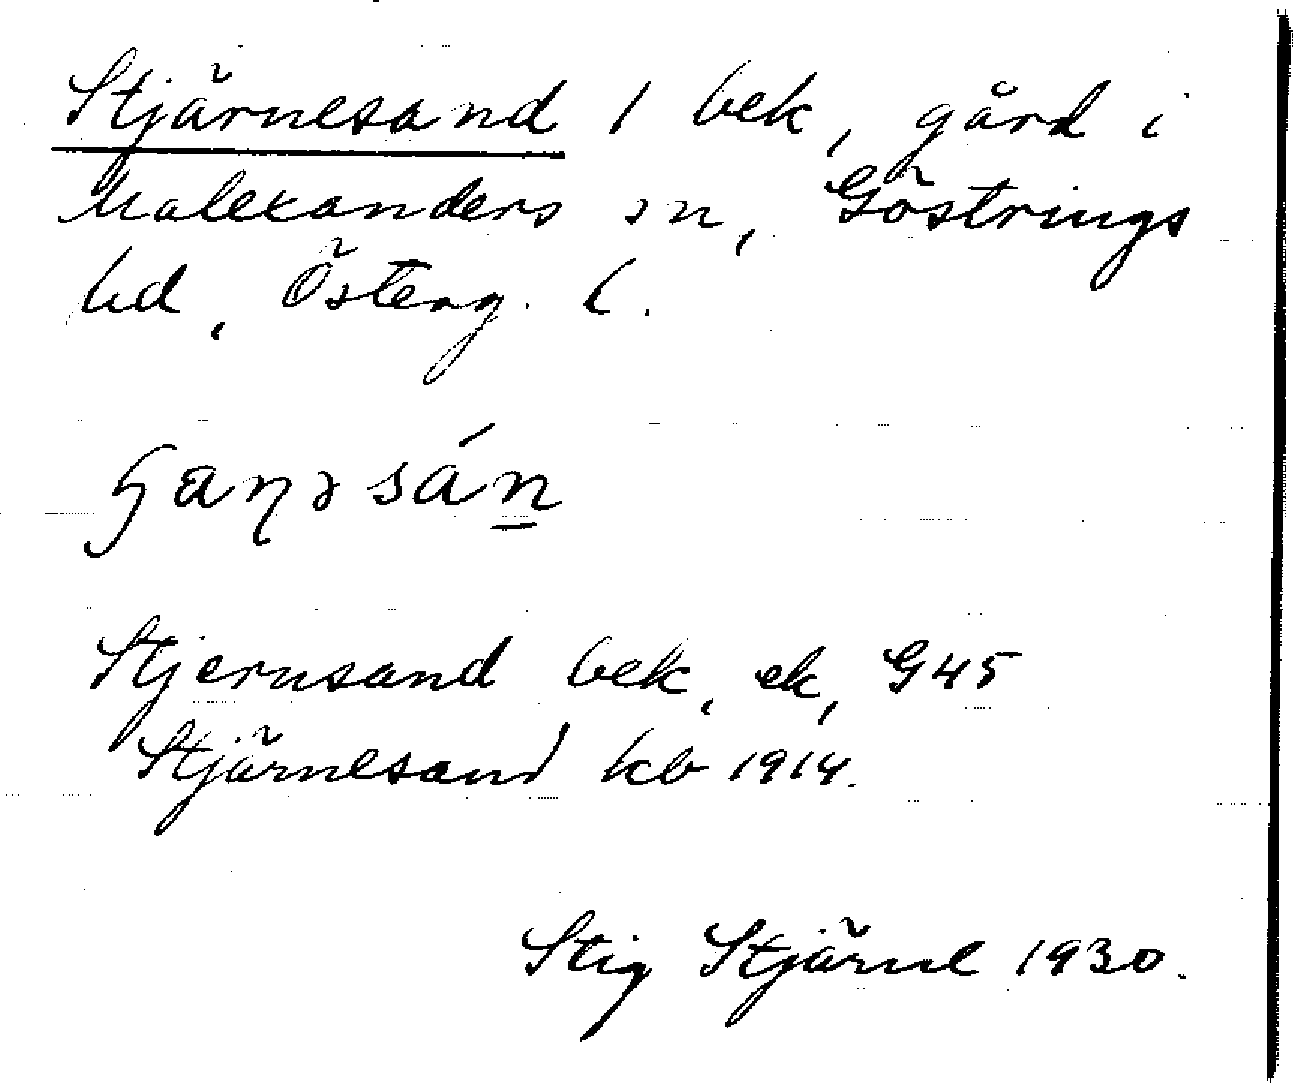 Stjärnesand 1 bek, gård i
Malexanders sn, Göstrings
hd, Österg. l.
ɧaɳəsán
Stjernsand bek, ek, G45
Stjärnesand kb 1914.
Stig Stjärne 1930.